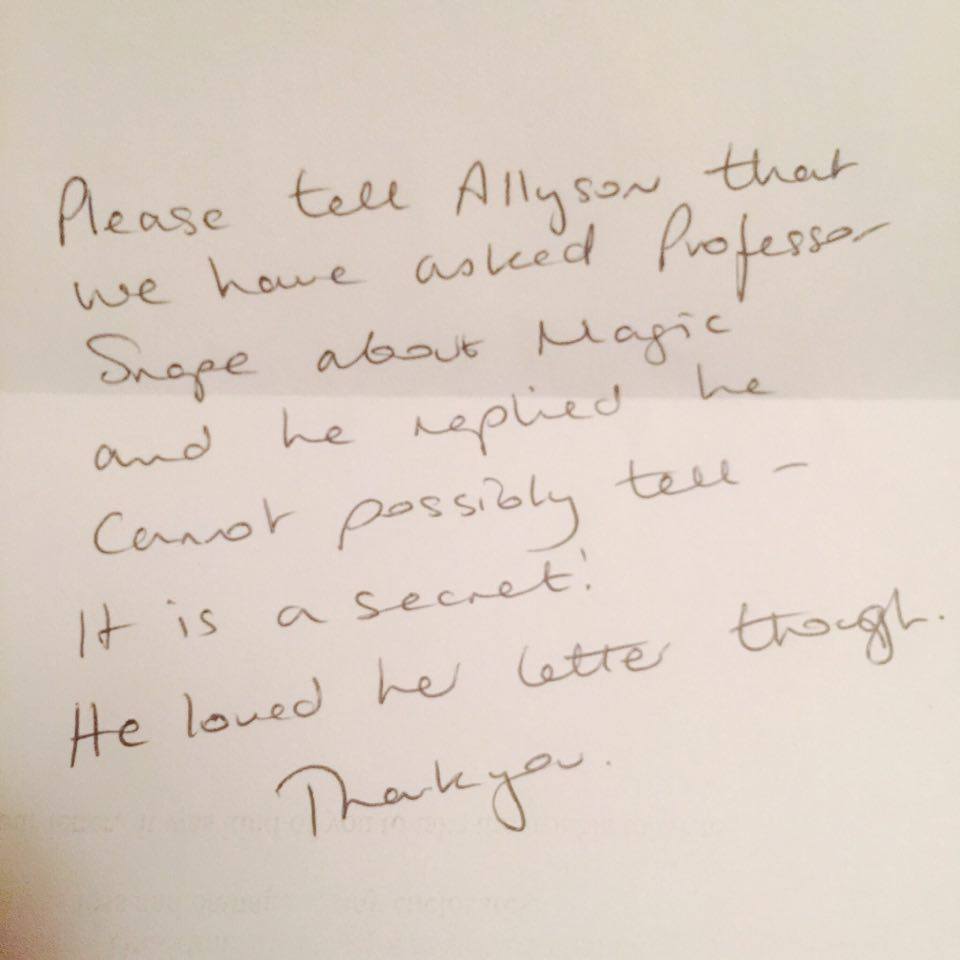 Please tell Allyson that
we have asked Professor
Snape about Magic
and he replied he
Cannot possibly tell -
It is a secret!
He loved her letter though.
Thankyou.